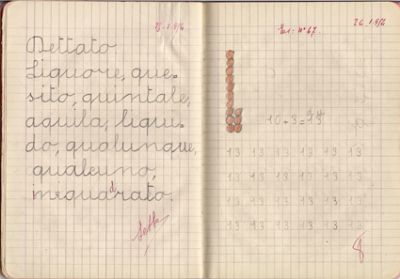 Dettato
Liquore, que-
sito, quintale,
aquila, liqui-
do, qualunque,
qualcuno,
inquadrato.
Sette
Es: n° 67.
10+3=13
13 13 13 13 13 13
13 13 13 13 13 13
13 13 13 13 13 13
13 13 13 13 13 13
8